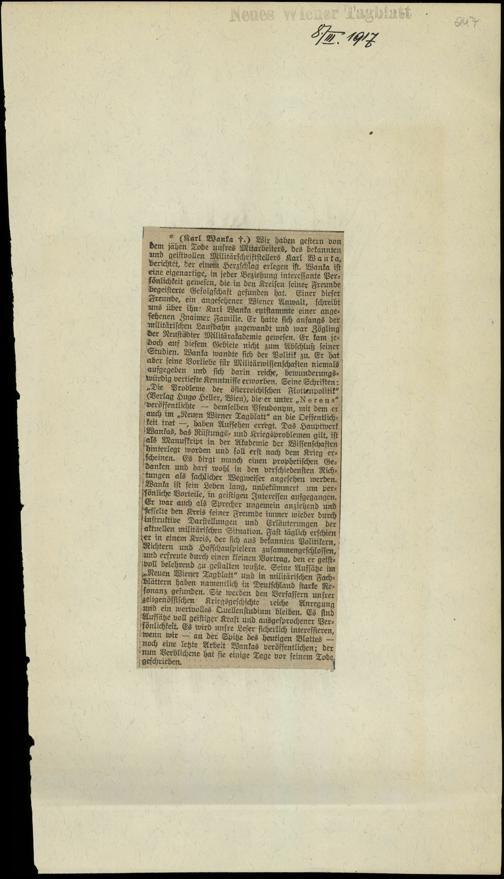 Neues Wiener Tagblatt
247
8/III. 1917
* (Karl Wanka †.) Wir haben gestern von
dem jähen Tode unsres Mitarbeiters, des bekannten
und geistvollen Militärschriftstellers Karl Wanka,
berichtet, der einem Herzschlag erlegen ist. Wanka ist
eine eigenartige, in jeder Beziehung interessante Per-
sönlichkeit gewesen, die in den Kreisen seiner Freunde
begeisterte Gefolgschaft gefunden hat. Einer dieser
Freunde, ein angesehener Wiener Anwalt, schreibt
uns über ihn: Karl Wanka entstammte einer ange-
sehenen Znaimer Familie. Er hatte sich anfangs der
militärischen Laufbahn zugewandt und war Zögling
der Neustädter Militärakademie gewesen. Er kam je-
doch auf diesem Gebiete nicht zum Abschluß seiner
Studien. Wanka wandte sich der Politik zu. Er hat
aber seine Vorliebe für Militärwissenschaften niemals
aufgegeben und sich darin reiche, bewunderungs-
würdig vertiefte Kenntnisse erworben. Seine Schriften:
„Die Probleme der österreichischen Flottenpolitik"
(Verlag Hugo Heller, Wien), die er unter „Nereus"
veröffentlichte — demselben Pseudonym, mit dem er
auch im „Neuen Wiener Tagblatt" an die Oeffentlich-
keit trat —, haben Aufsehen erregt. Das Hauptwerk
Wankas, das Rüstungs- und Kriegsproblemen gilt, ist
als Manuskript in der Akademie der Wissenschaften
hinterlegt worden und soll erst nach dem Krieg er-
scheinen. Es birgt manch einen prophetischen Ge-
danken und darf wohl in den verschiedensten Rich-
tungen als fachlicher Wegweiser angesehen werden.
Wanka ist sein Leben lang, unbekümmert um per-
sönliche Vorteile, in geistigen Interessen aufgegangen.
Er war auch als Sprecher ungemein anziehend und
fesselte den Kreis seiner Freunde immer wieder durch
instruktive Darstellungen und Erläuterungen der
aktuellen militärischen Situation. Fast täglich erschien
er in einem Kreis, der sich aus bekannten Politikern,
Richtern und Hofschauspielern zusammengeschlossen,
und erfreute durch einen kleinen Vortrag, den er geist-
voll belehrend zu gestalten wußte. Seine Aufsätze im
„Neuen Wiener Tagblatt" und in militärischen Fach-
blättern haben namentlich in Deutschland starke Re-
sonanz gefunden. Sie werden den Verfassern unsrer
zeitgenössischen Kriegsgeschichte reiche Anregung
und ein wertvolles Quellenstudium bleiben. Es sind
Aufsätze voll geistiger Kraft und ausgesprochener Per-
sönlichkeit. Es wird unsre Leser sicherlich interessieren,
wenn wir — an der Spitze des heutigen Blattes —
noch eine letzte Arbeit Wankas veröffentlichen; der
nun Verblichene hat sie einige Tage vor seinem Tode
geschrieben.